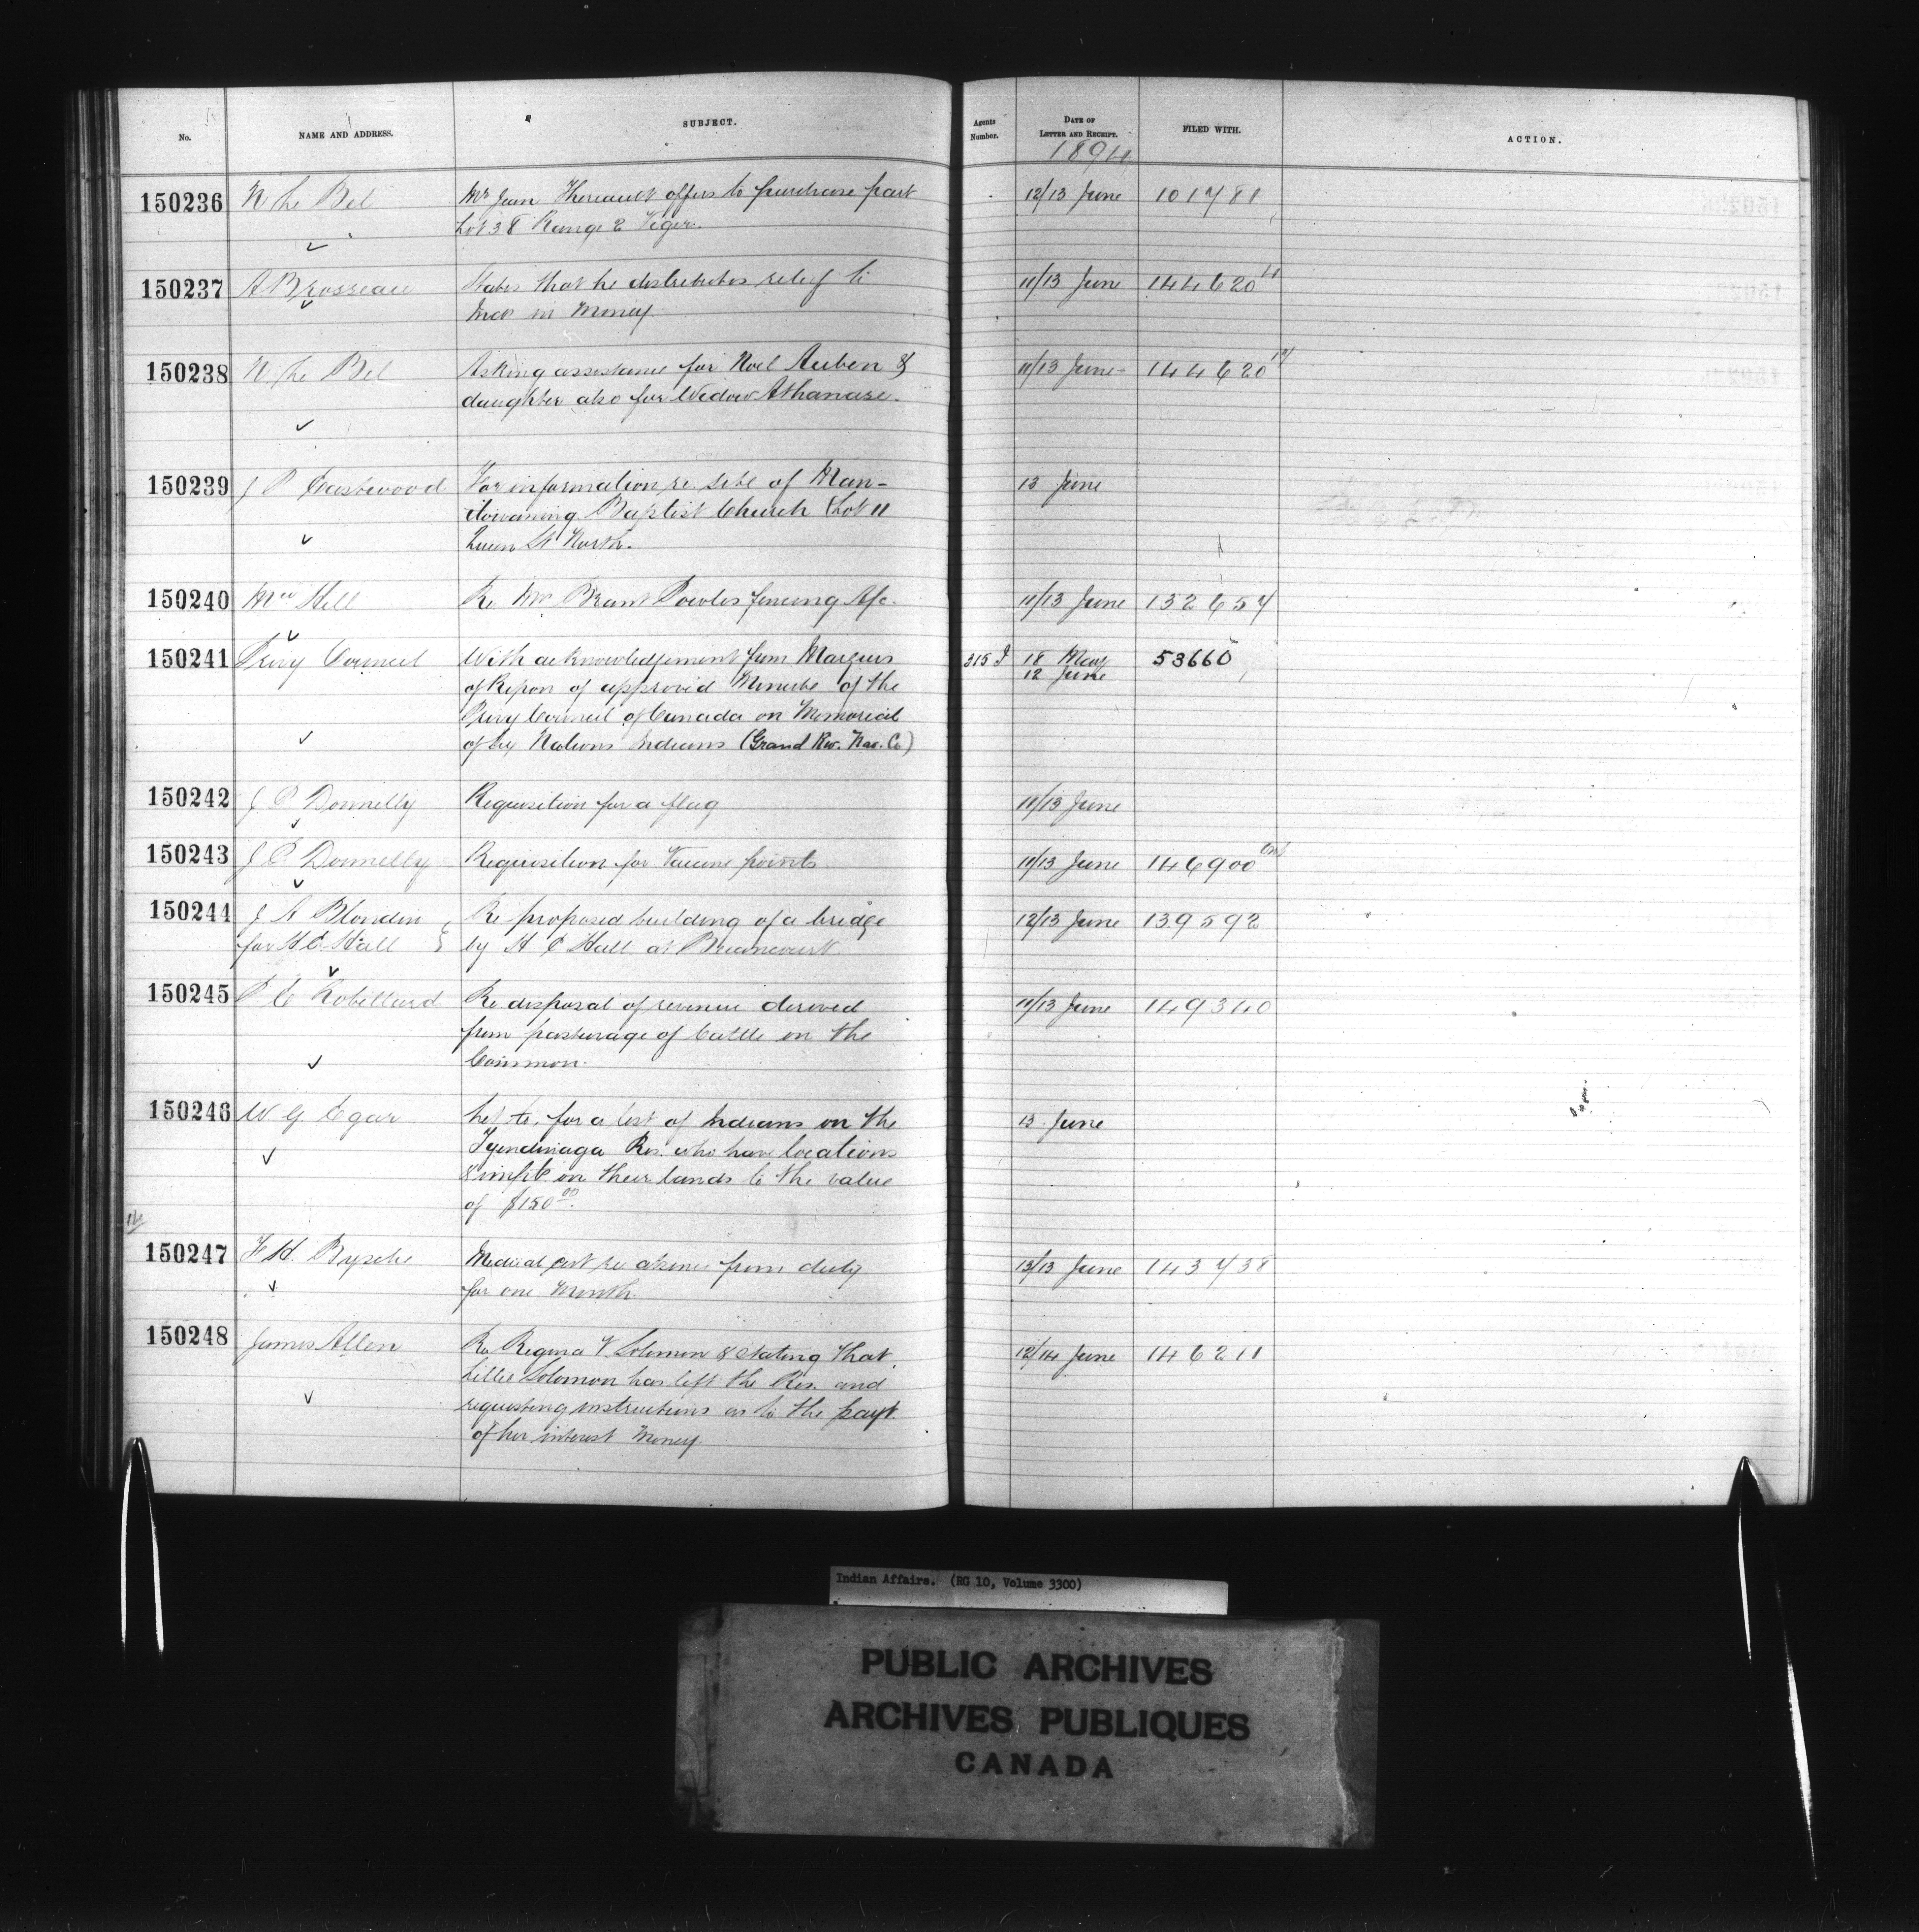 No.
NAME AND ADDRESS.
SUBJECT.
Agents Number.
DATE OF LETTER AND RECEIPT.
FILED WITH.
ACTION.
1894
150236 N Le Bel Mr Jean Theriault offers to purchase part 12/13 June 101781
Lot 38 Range 2 Viger.
150237 A Brosseau States that he distributes relief to 11/13 June 144620
Inds in Money
150238 N Le Bel Asking assistance for Noel Auben & 11/13 June 144620
daughter also for Widow Athanase.
150239 J P Eastwood For information re site of Man- 13 June
itowaning Baptist Church Lot 11
Queen St North.
150240 Hill Re Mr Brant Powles fencing A/c. 11/13 June 132657
150241 Privy Council With acknowledgement from Marquis 315 J 18 May 53660
of Ripon of approved Minute of the 12 June
Privy Council of Canada on Memorial
of Six Nations Indians (Grand Riv. Nav. Co)
150242 J P Donnelly Requisition for a flag 11/13 June
150243 J P Donnelly Requisition for Vaccine points 11/13 June 146900 Ont
150244 J A Blondin Re proposed building of a bridge 12/13 June 139592
for H C Hall by H C Hall at
150245 P E Robillard Re disposal of revenue derived 11/13 June 149340
from pasturage of Cattle on the
Common.
150246 W G Egar for a list of Indians on the 13 June
Tyendinaga Res. who have locations
& impts on their lands to the value
of $150.00
150247 F H. Byshe Medical cert re absence from duty 13/13 June 143738
for one Month
150248 James Allen Re Regina V. Solomon & stating that 12/14 June 146211
Lillie Solomon has left the Res. and
requesting instructions as to the payt
of her interest Money
Indian Affairs. (RG 10, Volume 3300)
PUBLIC ARCHIVES
ARCHIVES PUBLIQUES
CANADA